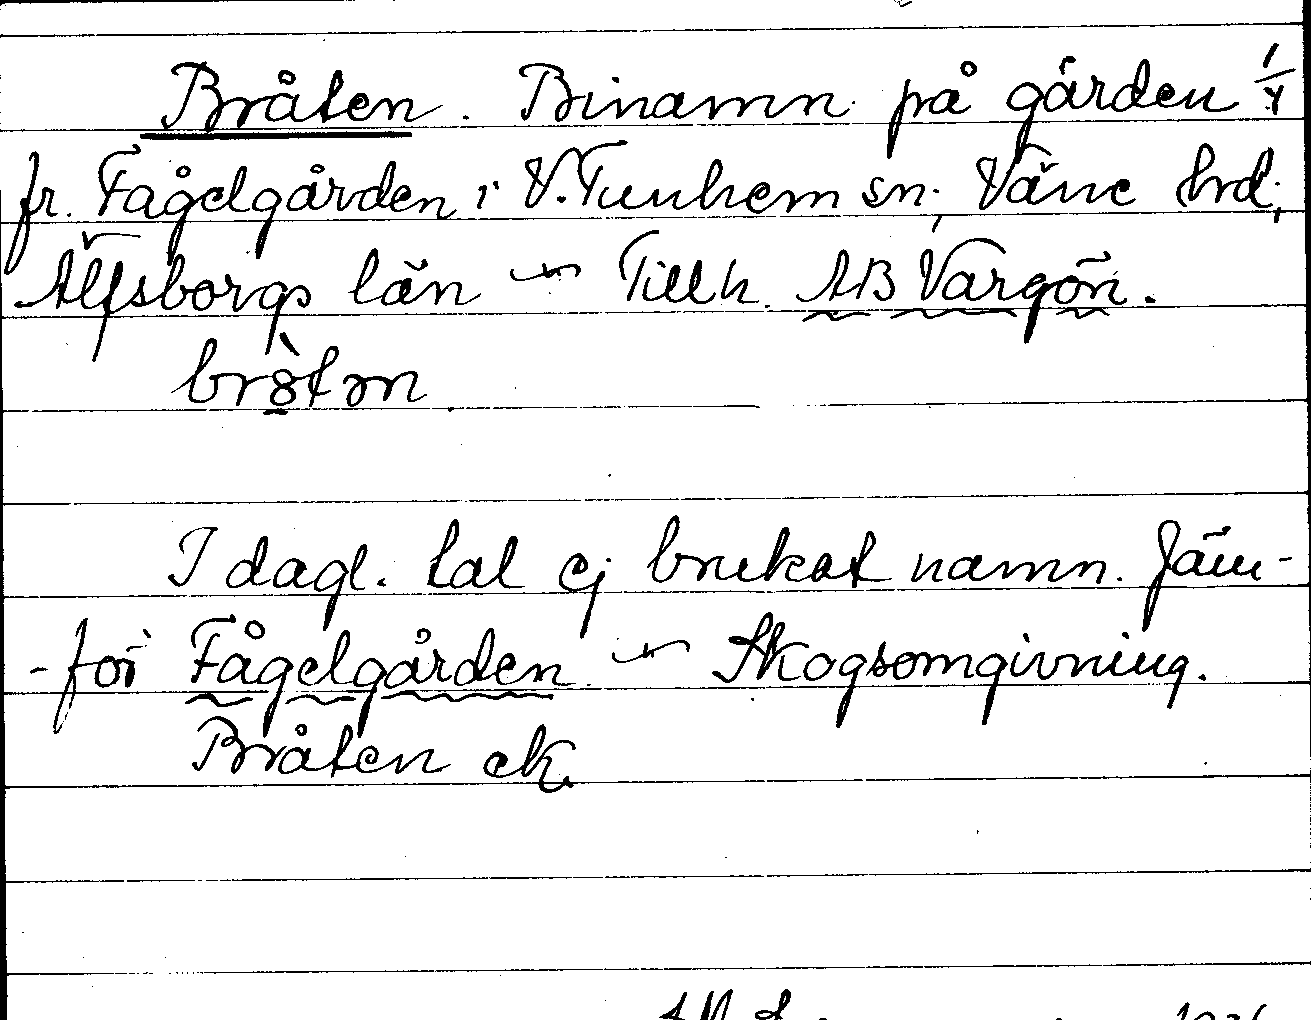 Bråten. Binamn på gården 1/4
fr. Fågelgården i V. Tunhem sn; Väne hrd;
Älfsborgs län ~ Tillh. AB Vargön.
brötən
I dagl. tal ej brukat namn. Jäm-
-för Fågelgården ~ Skogsomgivning.
Bråten ek.